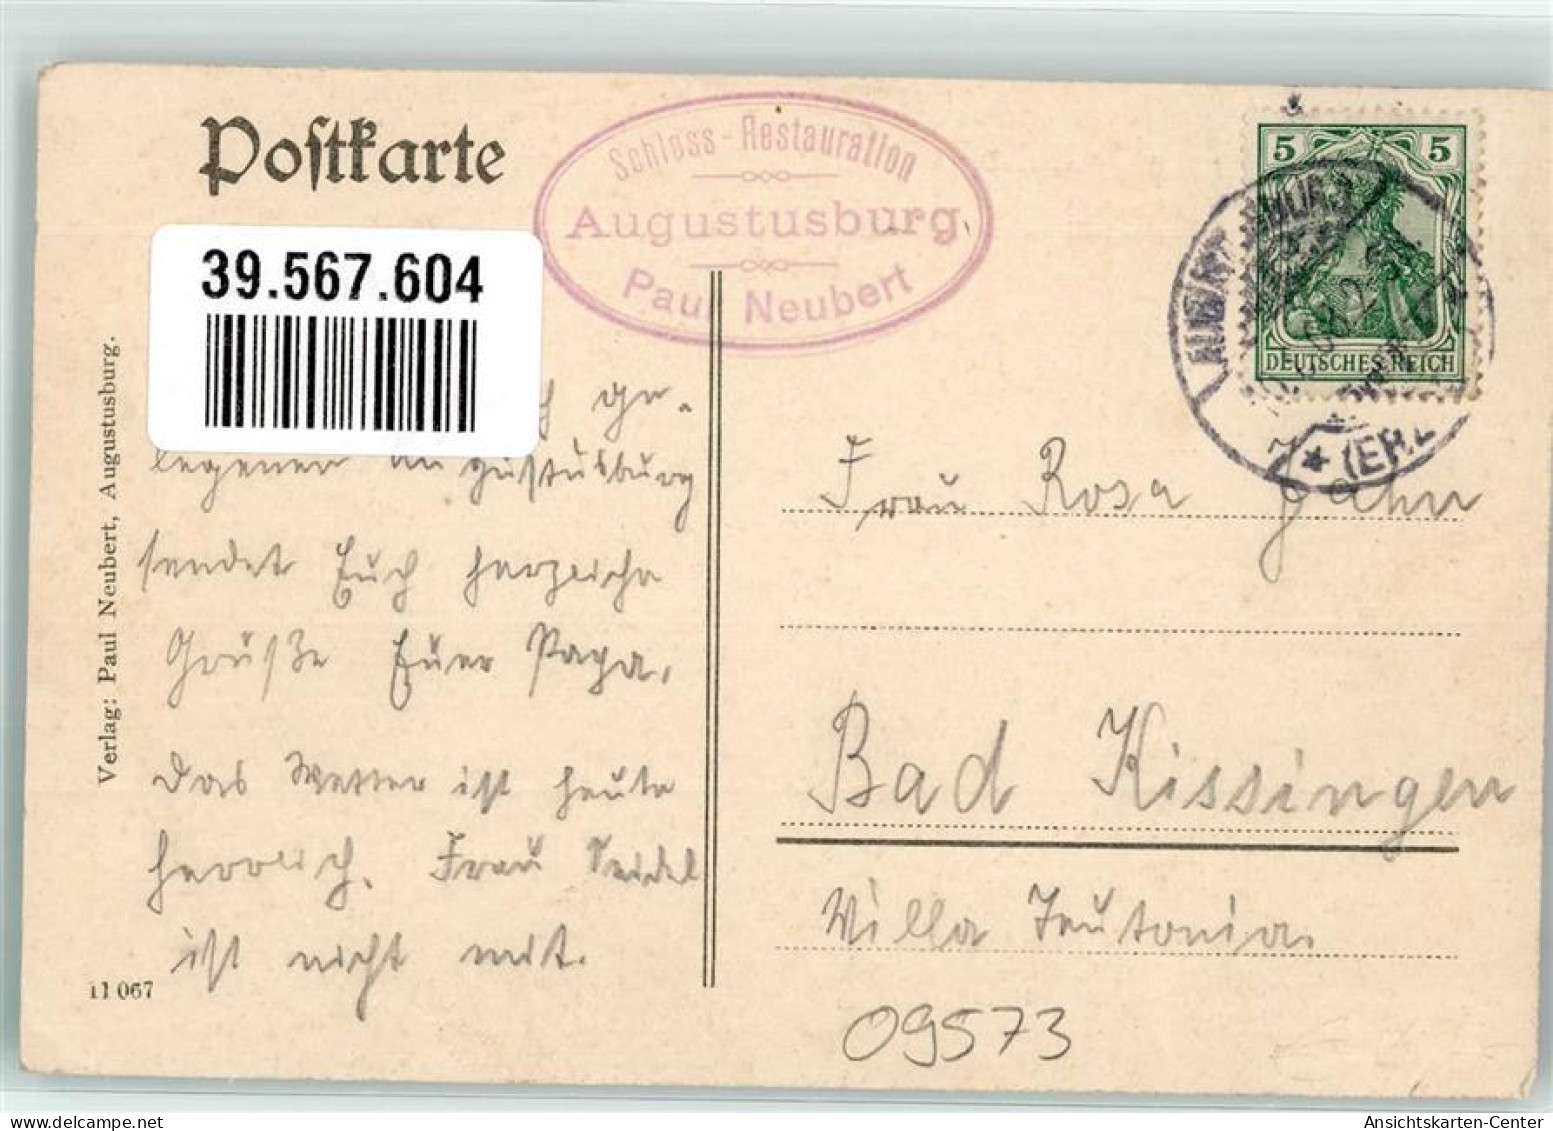 Postkarte
Schloss-Restauration
Augustusburg
Paul Neubert
5 5
DEUTSCHES REICH
(ERZ
39.567.604
Verlag: Paul Neubert, Augustusburg.
ge-
legenen Augustusburg
sendet Euch herzliche
Grüße Euer Papa.
Das Wetter ist heute
herrlich. Frau Seidel
ist nicht mit.
11 067
Frau Rosa Jahn
Bad Kissingen
Villa Teutonia.
09573
Ansichtskarten-Center